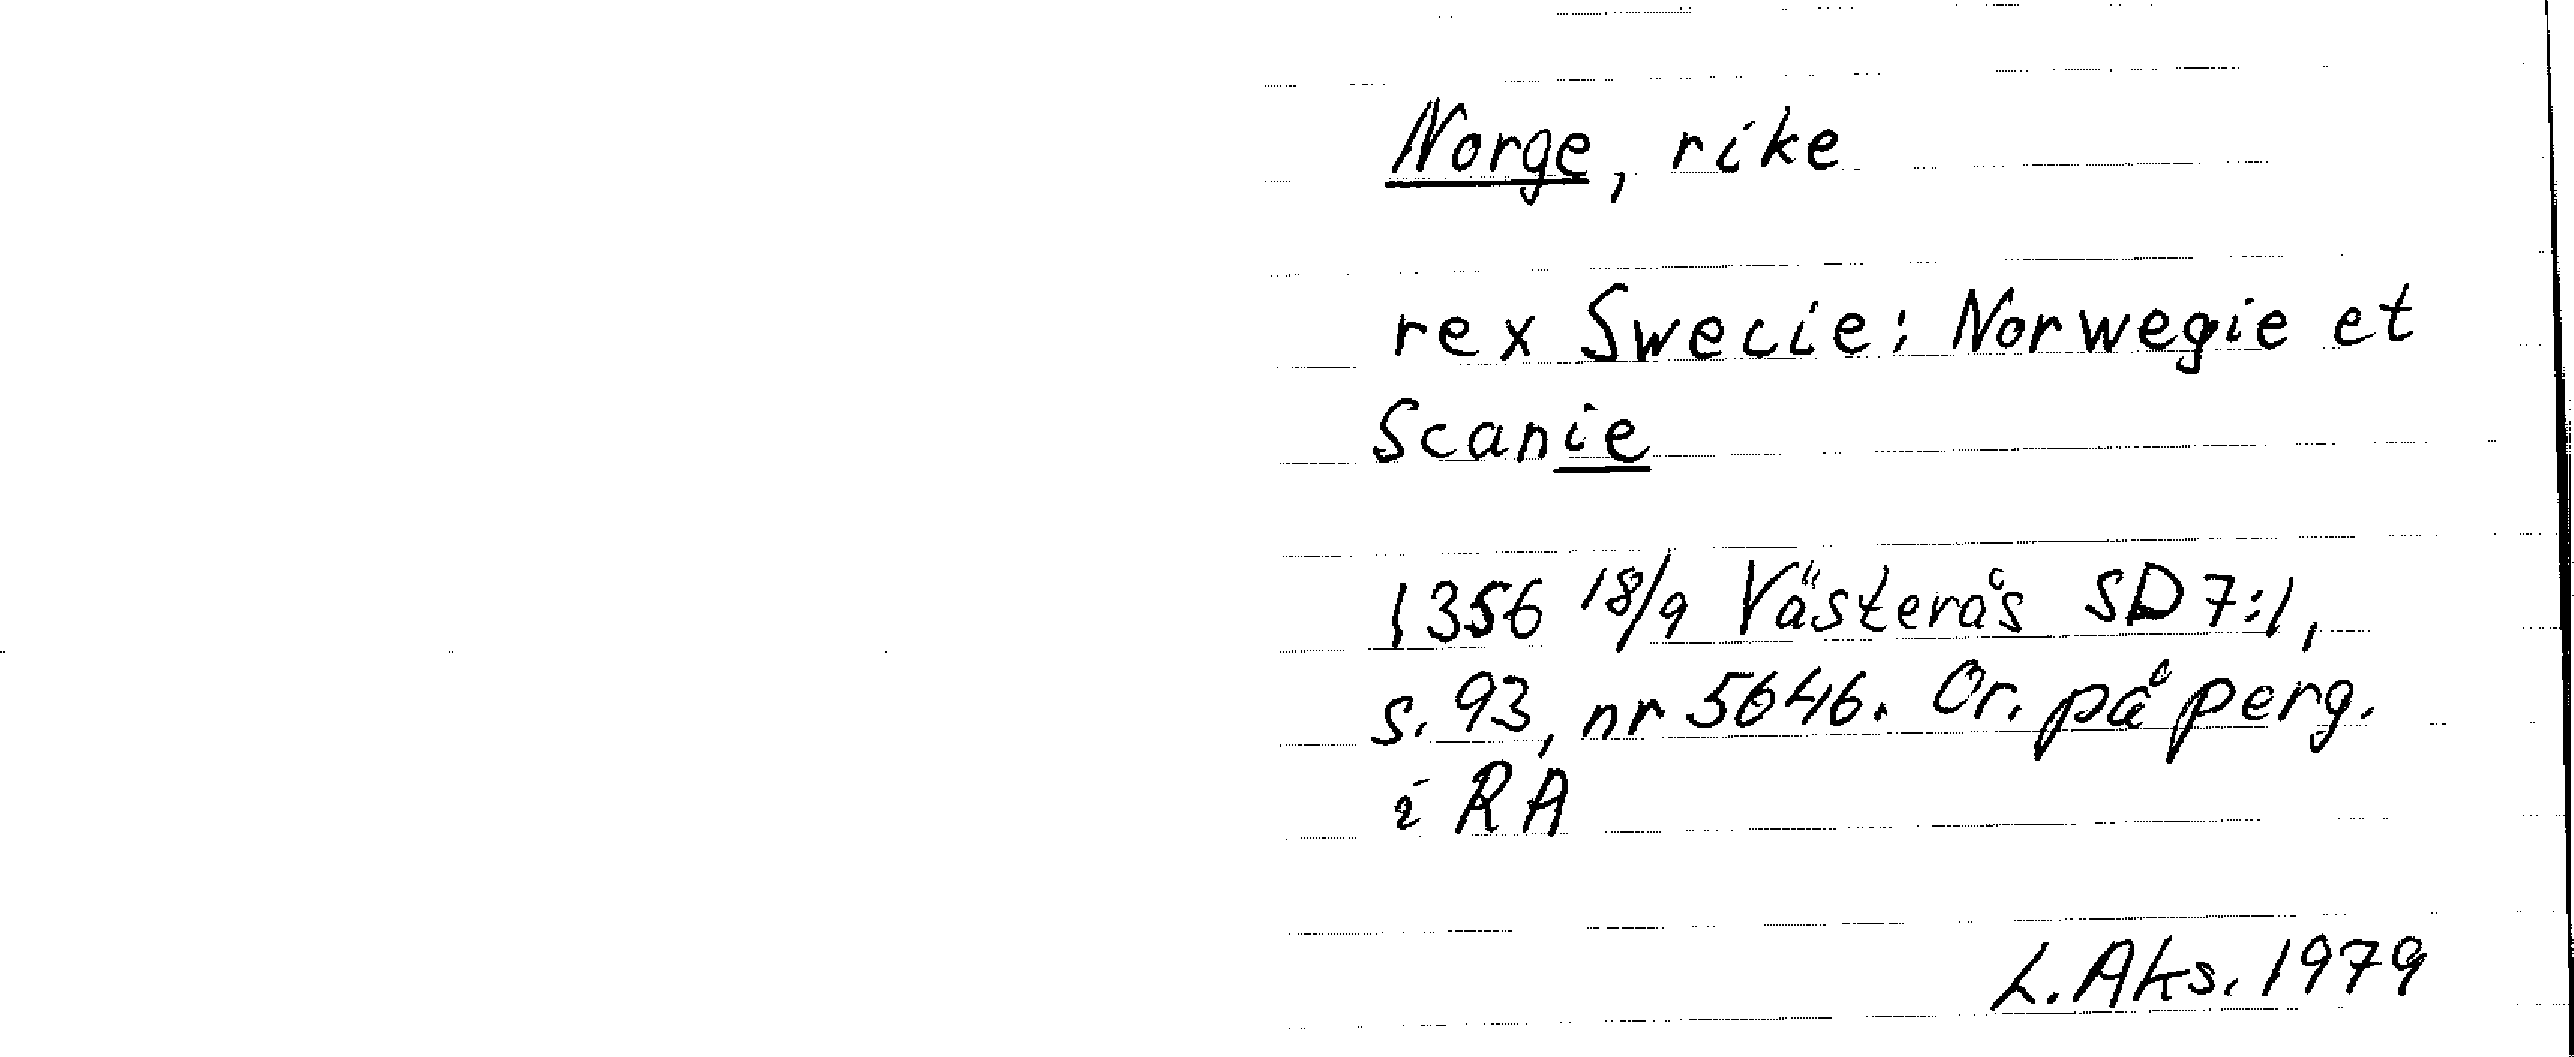 Norge, rike
rex Swecie: Norwegie et
Scanie
1356 18/9 Västerås SD 7:1,
s. 93, nr 5646. Or. på perg.
i RA
L. Aks. 1979